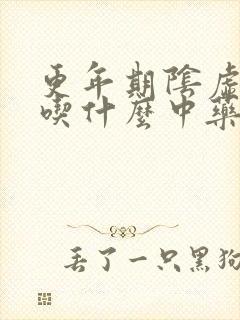 更年期陰虛
喫什麼中藥
丢了一只黑狗